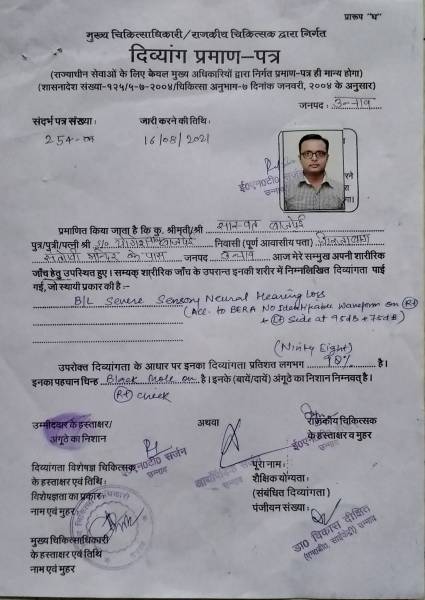 प्रारूप "घ"
मुख्य चिकित्साधिकारी/राजकीय चिकित्सक द्वारा निर्गत
दिव्यांग प्रमाण-पत्र
(राज्याधीन सेवाओं के लिए केवल मुख्य अधिकारियों द्वारा निर्गत प्रमाण-पत्र ही मान्य होगा)
(शासनादेश संख्या-१२५/५-७-२००४/चिकित्सा अनुभाग-७ दिनांक जनवरी, २००४ के अनुसार)
जनपद : उन्नाव
संदर्भ पत्र संख्या : जारी करने की तिथि :
254 16/08/2021
ई०एन०टी० सर्जन
उन्नाव
प्रमाणित किया जाता है कि कु. श्रीमृती/श्री बाजपेई
पुत्र/पुत्री/पत्नी श्री बाजपेई निवासी (पूर्ण आवासीय पता)
के पास जनपद उन्नाव आज मेरे सम्मुख अपनी शारीरिक
जाँच हेतु उपस्थित हुए। सम्यक् शारीरिक जाँच के उपरान्त इनकी शरीर में निम्नलिखित दिव्यांगता पाई
गई, जो स्थायी प्रकार की है :-
B/L Severe Sensory Neural Hearing Loss
(Acc. to BERA No Identifiable Waveform on Rt
+ Lt Side at 95dB + 75dB)
(Ninty Eight)
उपरोक्त दिव्यांगता के आधार पर इनका दिव्यांगता प्रतिशत लगभग 98% है।
इनका पहचान चिन्ह Black Mole on है। इनके (बायें/दायें) अंगूठे का निशान निम्नवत् है।
(Rt) cheek
उम्मीदवार के हस्ताक्षर/ अथवा राजकीय चिकित्सक
अंगूठे का निशान के हस्ताक्षर व मुहर
ई०एन०टी० सर्जन
उन्नाव
दिव्यांगता विशेषज्ञ चिकित्सक पूरा नाम :
के हस्ताक्षर एवं तिथि : शैक्षिक योग्यता :
विशेषज्ञता का प्रकार : (संबंधित दिव्यांगता)
नाम एवं मुहर पंजीयन संख्या :
मुख्य चिकित्साधिकारी
के हस्ताक्षर एवं तिथि
नाम एवं मुहर
डा० विकास दीक्षित
उन्नाव